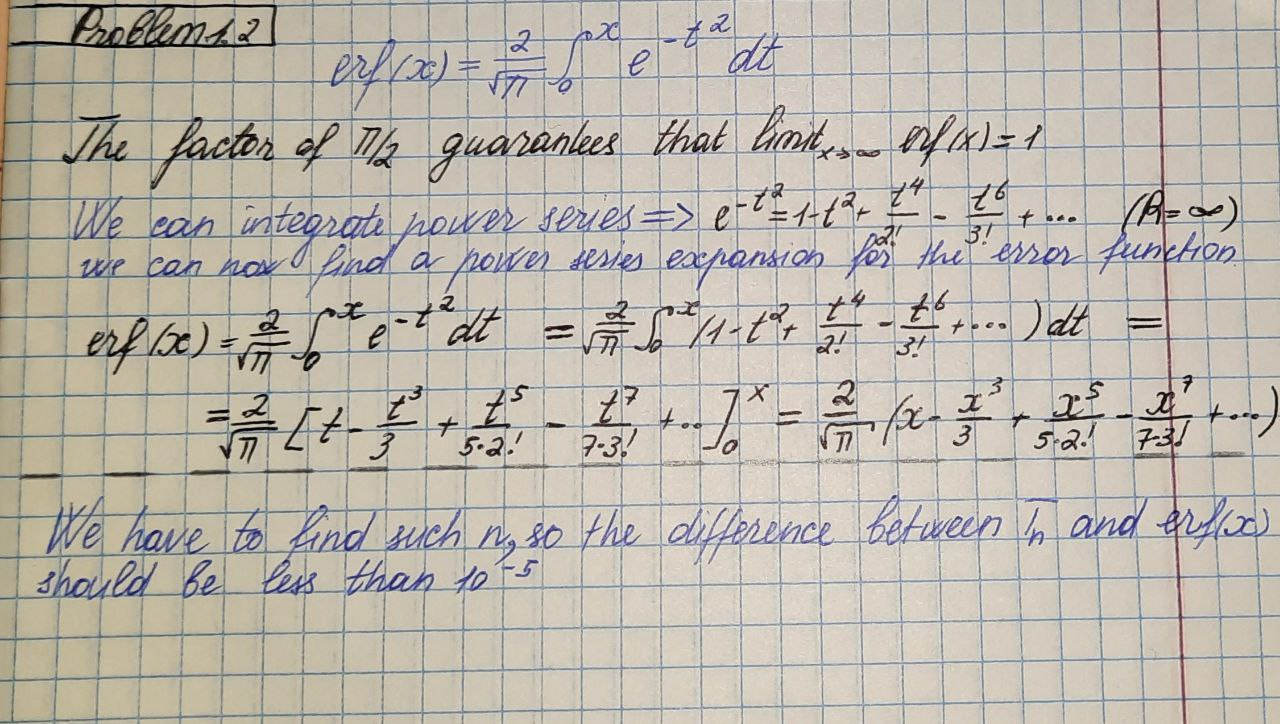 Problem 1.2
erf(x) = 2/√π ∫₀ˣ e^(-t²) dt
The factor of π/2 guarantees that limit x→∞ erf(x) = 1
We can integrate power series => e^(-t²) = 1 - t² + t⁴/2! - t⁶/3! + ... (R = ∞)
we can now find a power series expansion for the error function
erf(x) = 2/√π ∫₀ˣ e^(-t²) dt = 2/√π ∫₀ˣ (1 - t² + t⁴/2! - t⁶/3! + ...) dt =
= 2/√π [t - t³/3 + t⁵/(5·2!) - t⁷/(7·3!) + ..]₀ˣ = 2/√π (x - x³/3 + x⁵/(5·2!) - x⁷/(7·3!) + ...)
We have to find such n, so the difference between Tn and erf(x)
should be less than 10⁻⁵